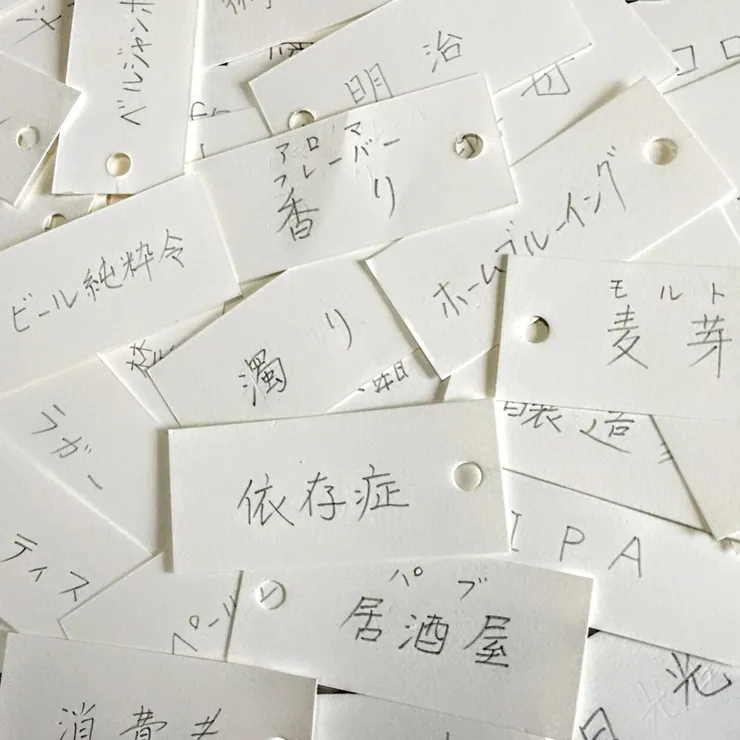 明治
コロ
ベルジャン
アロマ
フレーバー
香り
ホームブルーイング
ビール純粋令
モルト
麦芽
濁り
ラガー
製造
依存症
IPA
ティス
ペール
パブ
居酒屋
光
消費